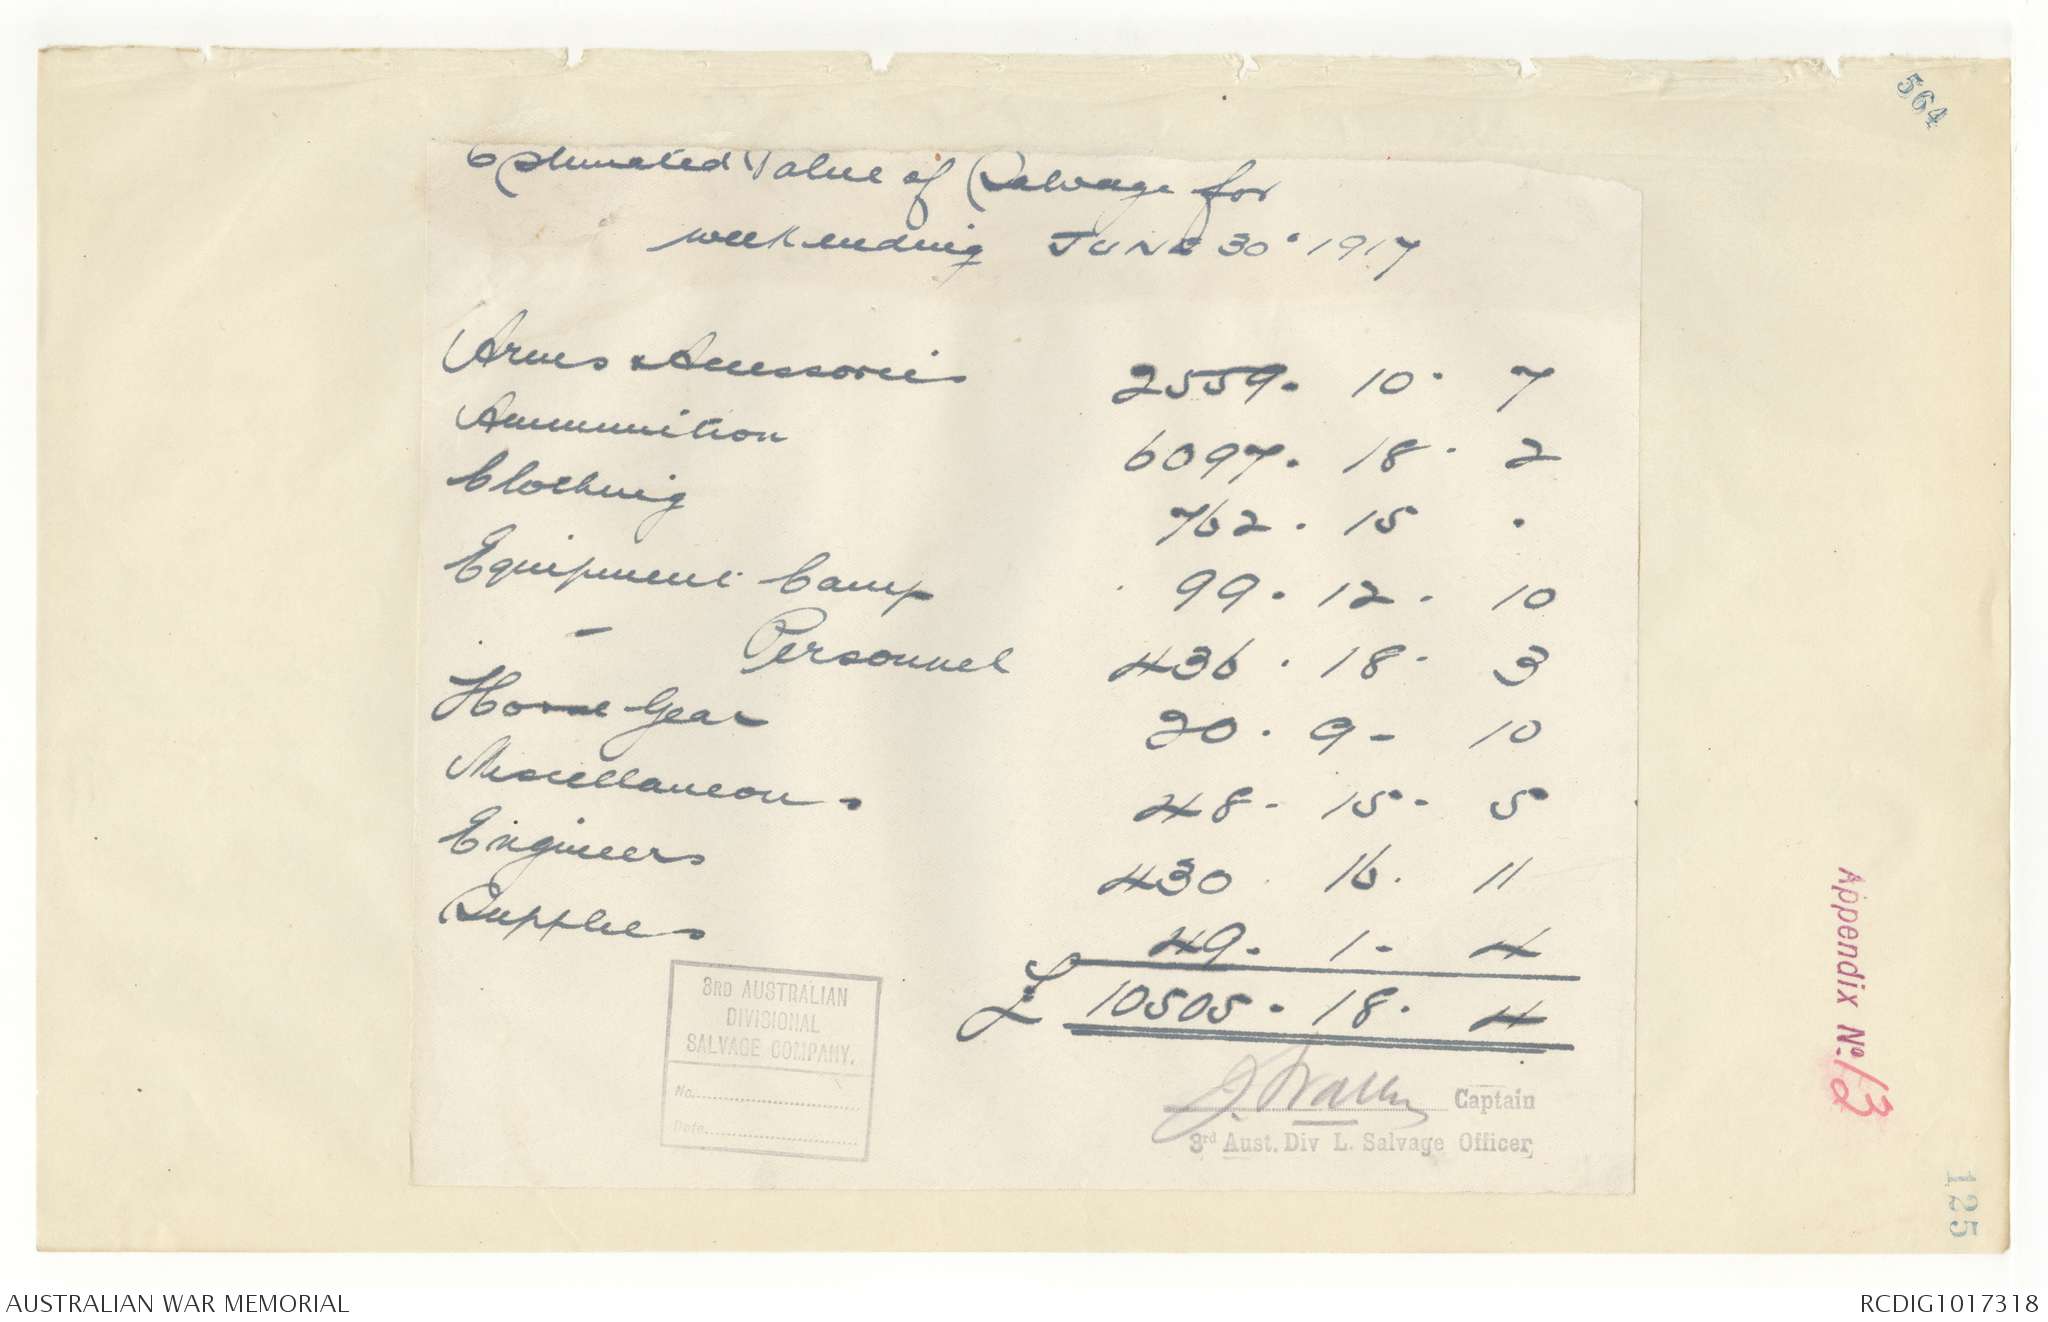 564
Estimated Value of Salvage for
week ending JUNE 30. 1917
Arms & Accessories 2559. 10. 7
Ammunition 6097. 18. 2
Clothing 762. 15 .
Equipment Camp 99. 12. 10
— Personnel 436. 18. 3
Horse Gear 20. 9 - 10
Miscellaneous 48 - 15 - 5
Engineers 430. 16. 11
Supplies 49 - 1 - 4
£ 10505. 18. 4
3RD AUSTRALIAN
DIVISIONAL
SALVAGE COMPANY.
No.
Date
J. Captain
3rd Aust. Div L. Salvage Officer
Appendix No. 13
125
AUSTRALIAN WAR MEMORIAL
RCDIG1017318